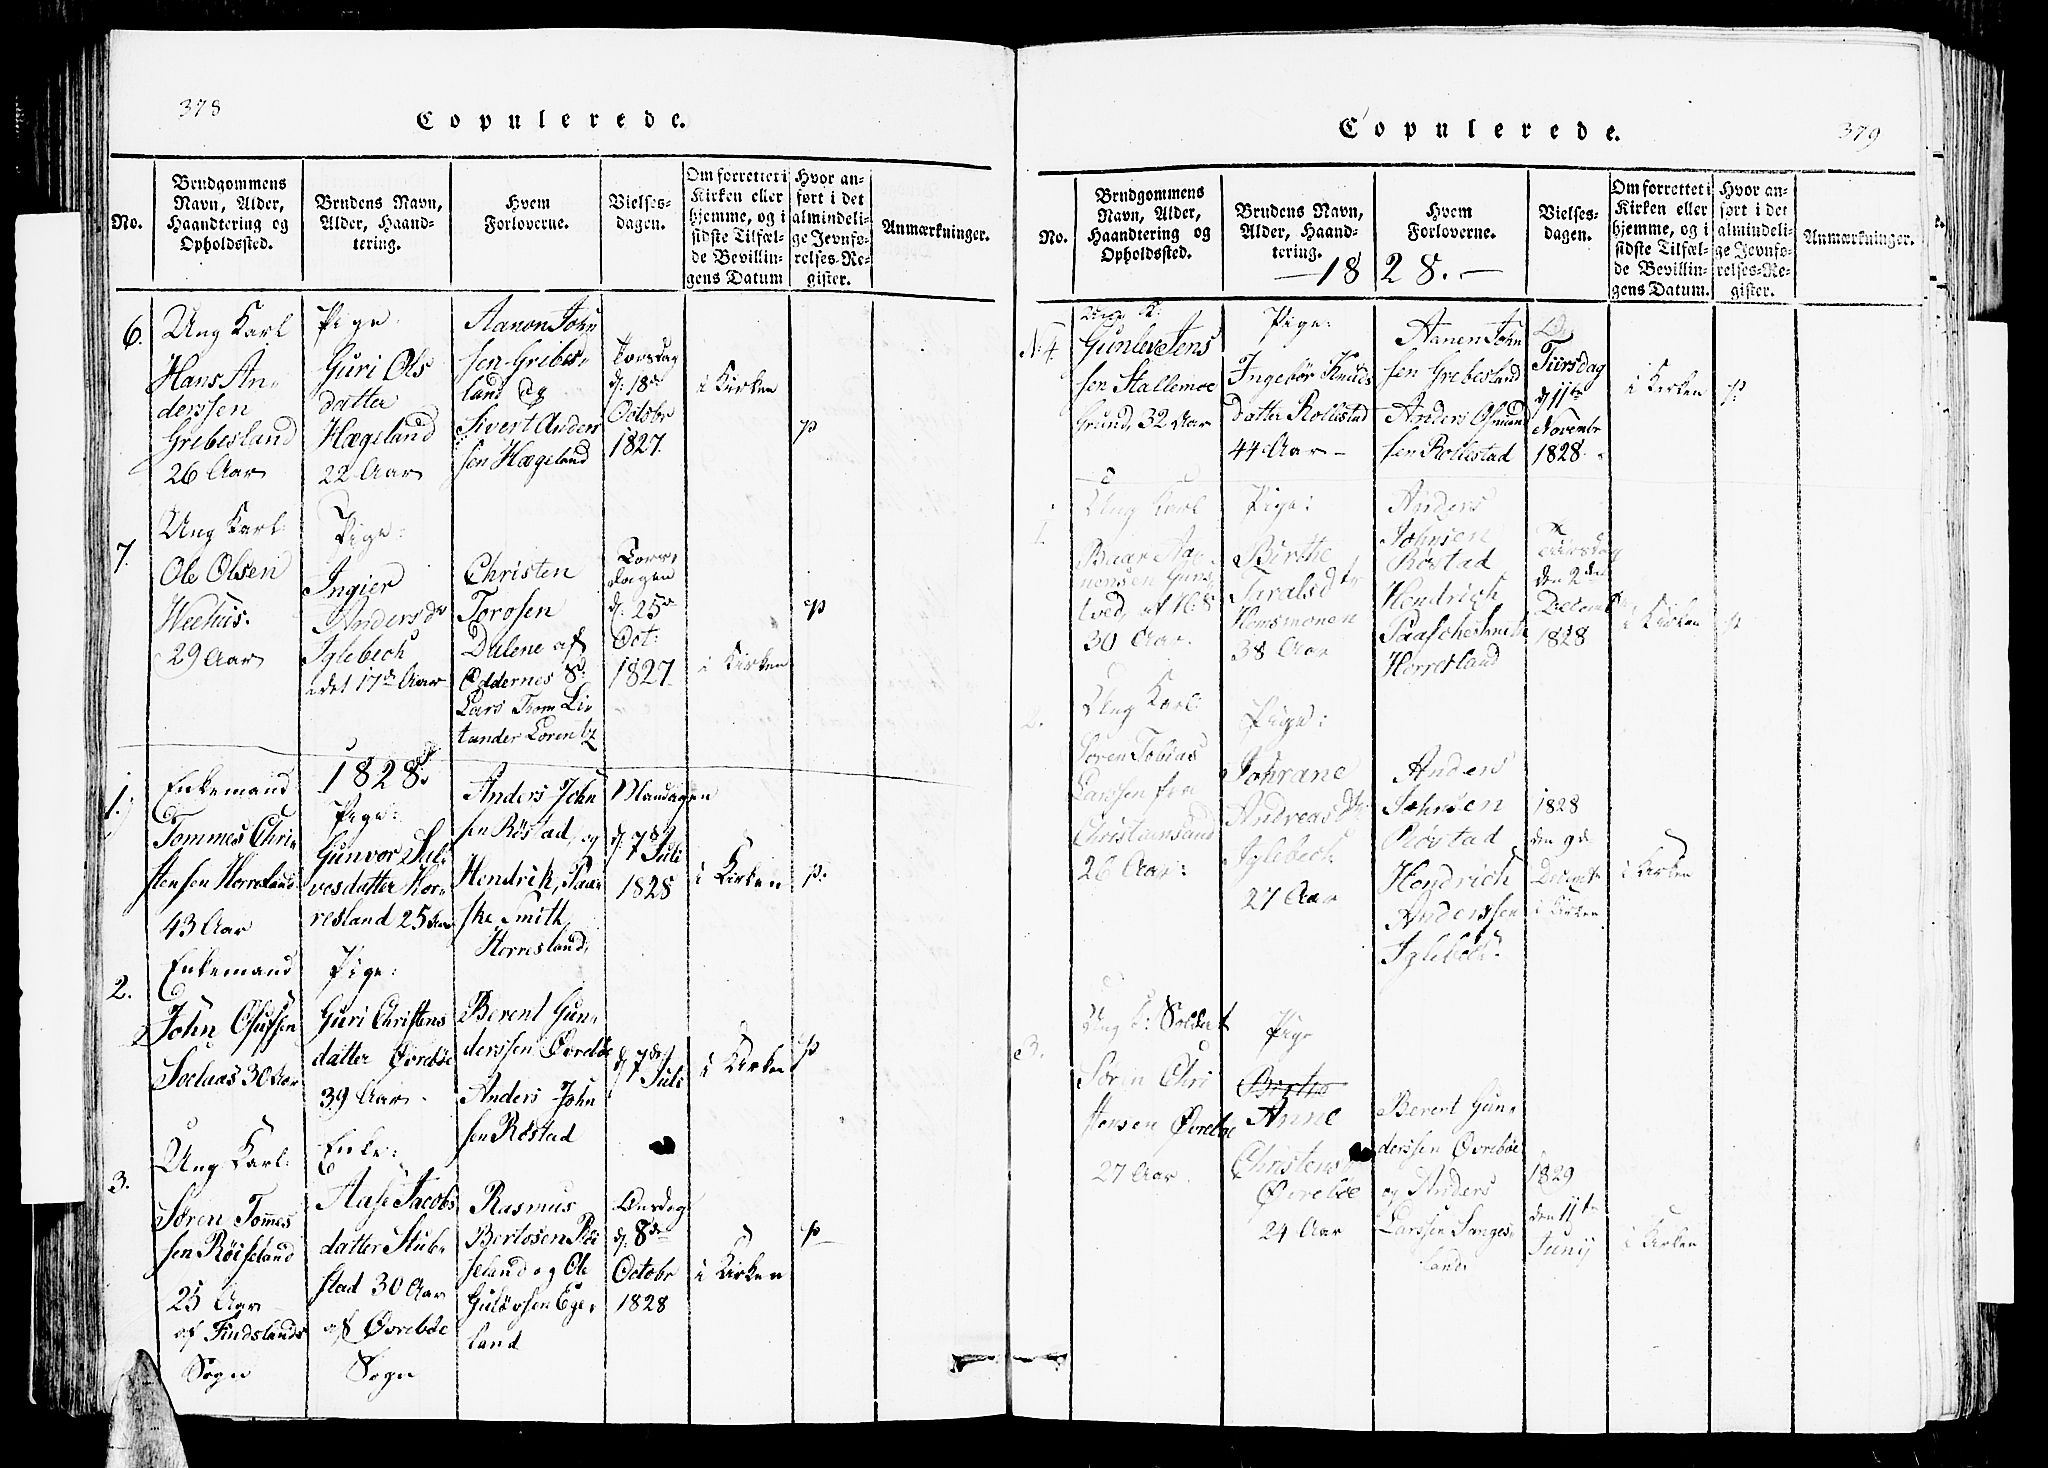 378
Copulerede.
No.
Brudgommens
Navn, Alder,
Haandtering og
Opholdssted.
Brudens Navn,
Alder, Haand-
tering.
Hvem
Forloverne.
Vielses-
dagen.
Om forrettet i
Kirken eller
hjemme, og i
sidste Tilfæl-
de Bevillin-
gens Datum
Hvor an-
ført i det
almindeli-
ge Jevnfø-
relses-Re-
gister.
Anmærkninger.
6.
Ung Karl
Hans An-
derssen
Grebesland
26 Aar
Pige:
Guri Ols
datter
Hægeland
22 Aar
Aanon John
sen Grebes-
land og
Sivert Anders
sen Hægeland
Torsdag
d: 18de
Octobr
1827.
i Kirken
p
7.
Ung Karl:
Ole Olsen
Heehus.
29 Aar
Pige:
Ingier
Anders dr
Iglebech
i det 17de Aar
Christen
Torosen
Dalene af
Oddernes S:
Lars Trom
tander Lorentz
Tors-
dagen
d: 25de
Oct:
1827.
i Kirken
p
1828.
1.
Enkemand
Tommes Chri-
stensen Horresland
43 Aar
Pige:
Gunvor Sal-
vesdatter Hor-
resland 25 Aar
Anders John
sen Röstad, og
Hendrik, Paa-
ske Smith
Horresland,
Mandagen
d: 7de Juli
1828
i Kirken
p.
2.
Enkemand
John Olufsen
Soelaas 30 Aar
Pige:
Guri Christens
datter Øvreböe
39 Aar
Berent Gun-
derssen Øvreböe
Anders John
sen Röstad
d 7de Juli
i Kirken
p
3.
Ung Karl:
Søren Tommes
sen Röiseland
25 Aar
af Findslands
Sogn
Enke:
Aase Jacobs
datter Stub-
stad 30 Aar
af Øvreböe
Sogn
Rasmus
Bertosen Röi
seland og Ole
Gulövsen Ege-
land
Onsdag
d: 8de
Octobr
1828
i Kirken
p
379
Copulerede.
No.
Brudgommens
Navn, Alder,
Haandtering og
Opholdssted.
Brudens Navn,
Alder, Haand-
tering.
Hvem
Forloverne.
Vielses-
dagen.
Om forrettet i
Kirken eller
hjemme, og i
sidste Tilfæl-
de Bevillin-
gens Datum.
Hvor an-
ført i det
almindeli-
ge Jevnfø-
relses-Re-
gister.
Anmærkninger.
—1828.—
N: 4.
Ung K:
Gunlev Jens
sen Stallemoe
Grund, 32 Aar
Pige:
Ingebör Knuds
datter Rollestad
44 Aar —
Aanen John
sen Grebesland
Anders Osmund
sen Rollestad
Tiirsdag
d 11te
Novembr
1828.
i Kirken
p.
1.
Ung Karl
Baar Aa-
nonsen
tved, af N: S
30 Aar.
Pige:
Birthe
Taralsdtr
Homsmonen
38 Aar
Anders
Johnsen
Röstad
Hendrich
Paasche Smith
Horresland
Tiirsdag
den 2den
Decembr
1828
i Kirken
p
2.
Ung Karl:
Søren Tobias
Larssen fra
Christiansand
26 Aar:
Pige:
Johrane
Andreas dtr.
Iglebech
27 Aar
Anders
Johnsen
Röstad
Hendrich
Anderssen
Iglebech.
1828
den 9de
Decembr
i Kirken
i Kirken
3.
Ung K: Soldat
Søren Chri
stensen Øvreböe
27 Aar.
Pige
Anne
Christens
Øvreböe
24 Aar
Berent Gun-
derssen Øvreböe
og Anders
Larssen
land.
1829
den 11te
Junij
i Kirken